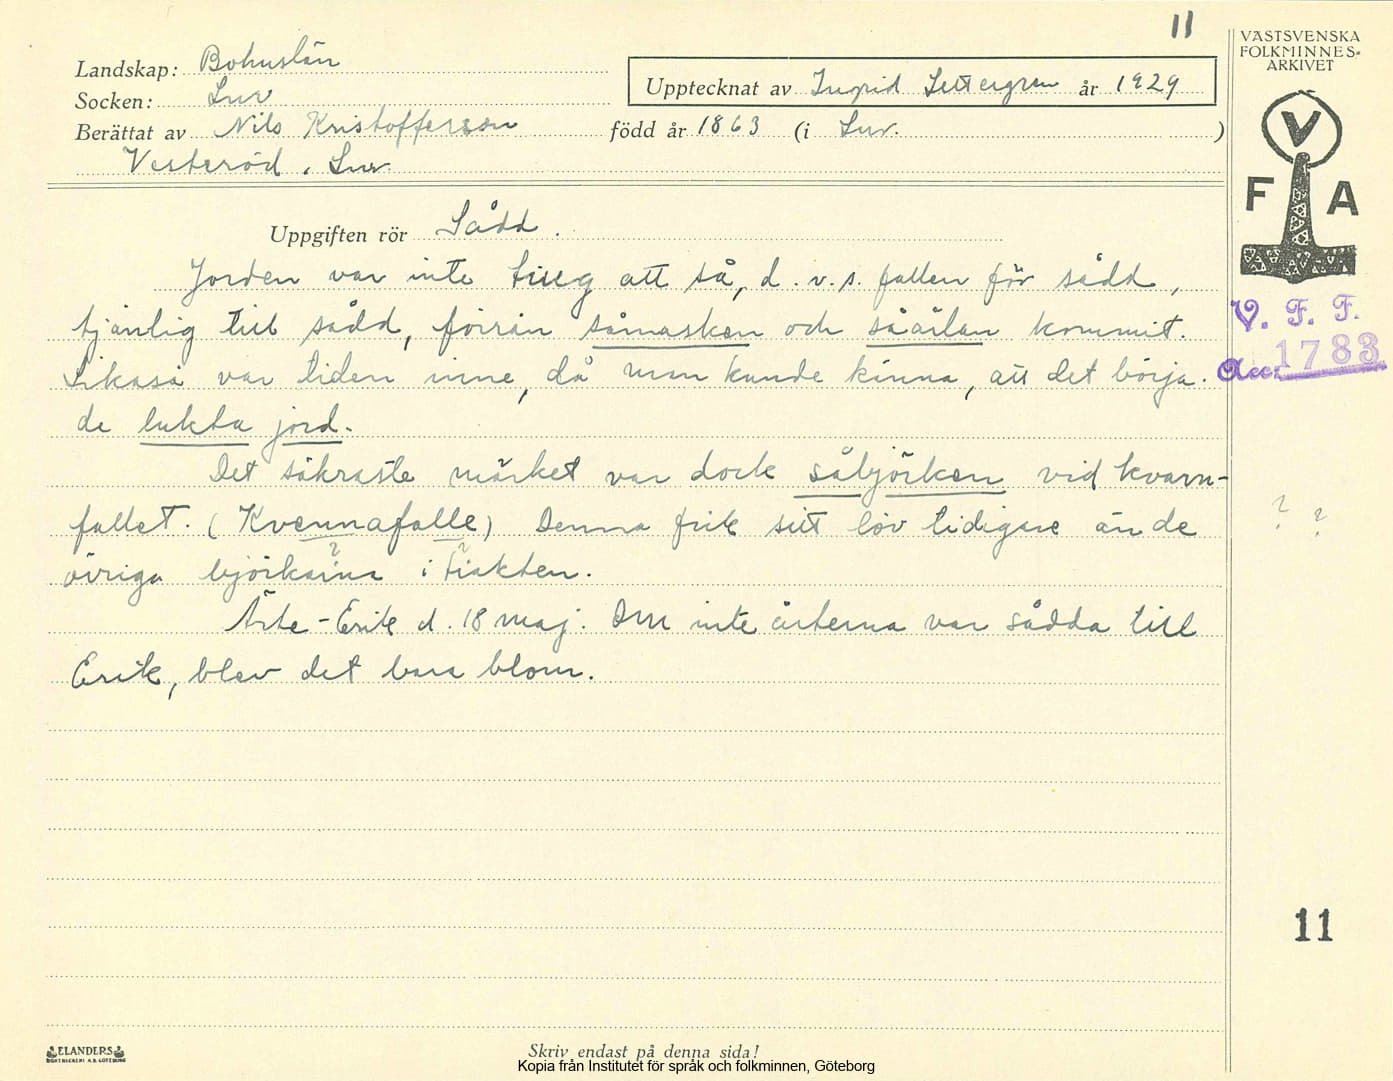 11
VÄSTSVENSKA
FOLKMINNES-
ARKIVET
Landskap: Bohuslän
Socken: Lur
Upptecknat av Ingrid Settergren år 1929
Berättat av Nils Kristofferson född år 1863 (i Lur. )
Vesteröd, Lur.
V
F A
Uppgiften rör Sådd.
Jorden var inte tileg att så, d.v.s. fallen för sådd,
tjänlig till sådd, förrän såmasken och såärlan kommit.
V. F. F.
Acc: 1783
Likaså var tiden inne, då man kunde känna, att det börja-
de lukta jord.
Det säkraste märket var dock såbjörken vid kvarn-
fallet. (Kvennafalle) Denna fick sitt löv tidigare än de
? ?
övriga björkarna i trakten.
Ärte-Erik d. 18 maj. Om inte ärterna var sådda till
Erik, blev det bara blom.
11
ELANDERS
BOKTRYCKERI A.B. GÖTEBORG
Skriv endast på denna sida!
Kopia från Institutet för språk och folkminnen, Göteborg